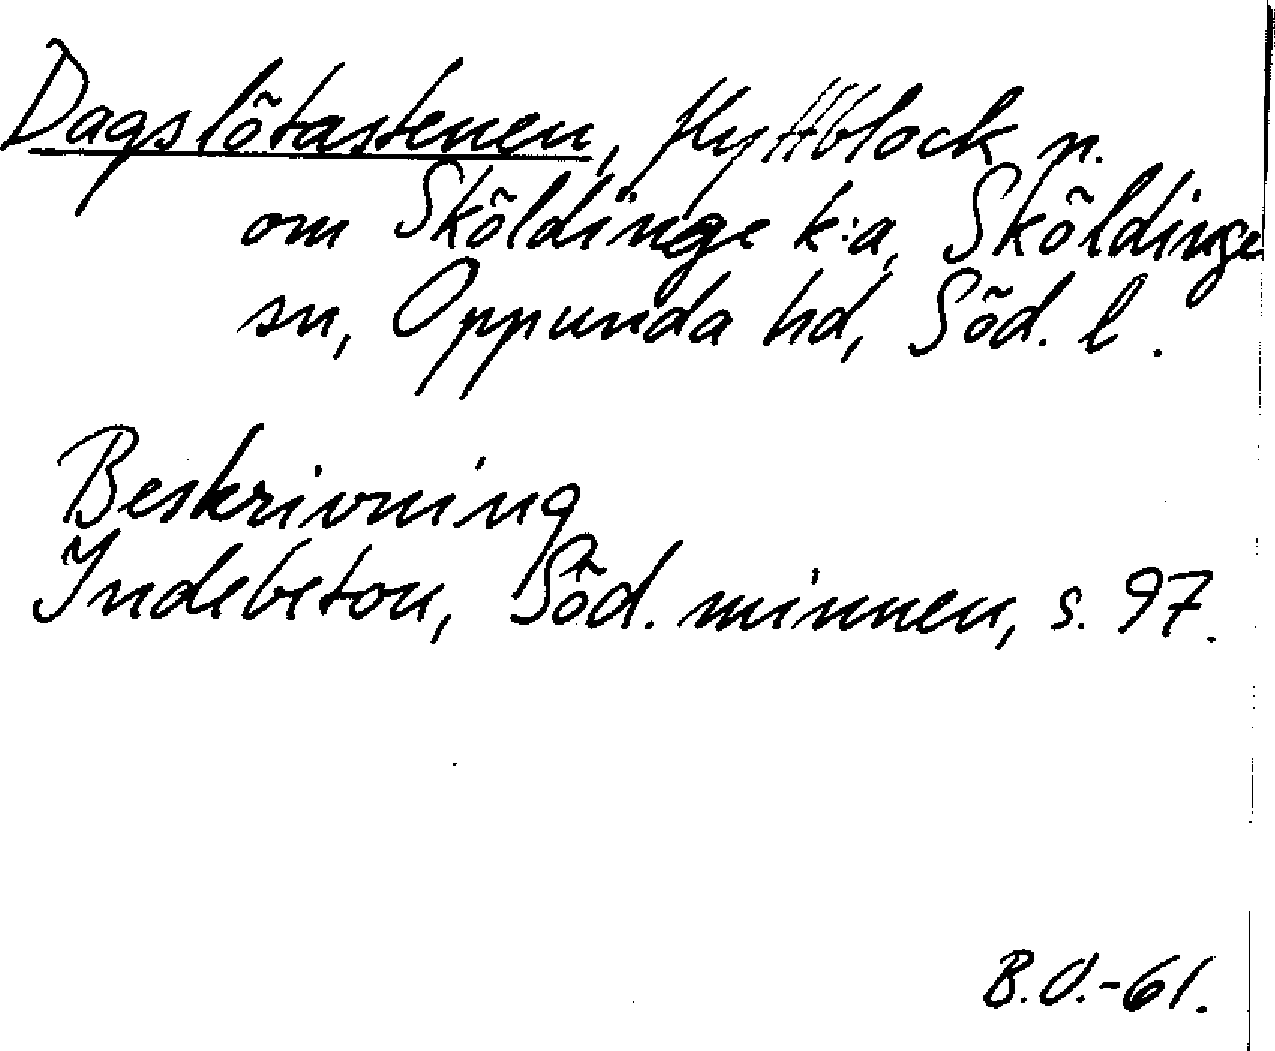 Dagslötastenen, flyttblock n.
om Sköldinge k:a, Sköldinge
sn, Oppunda hd, Söd. l.
Beskrivning
Indebetou, Söd. minnen, s. 97.
B.O.-61.